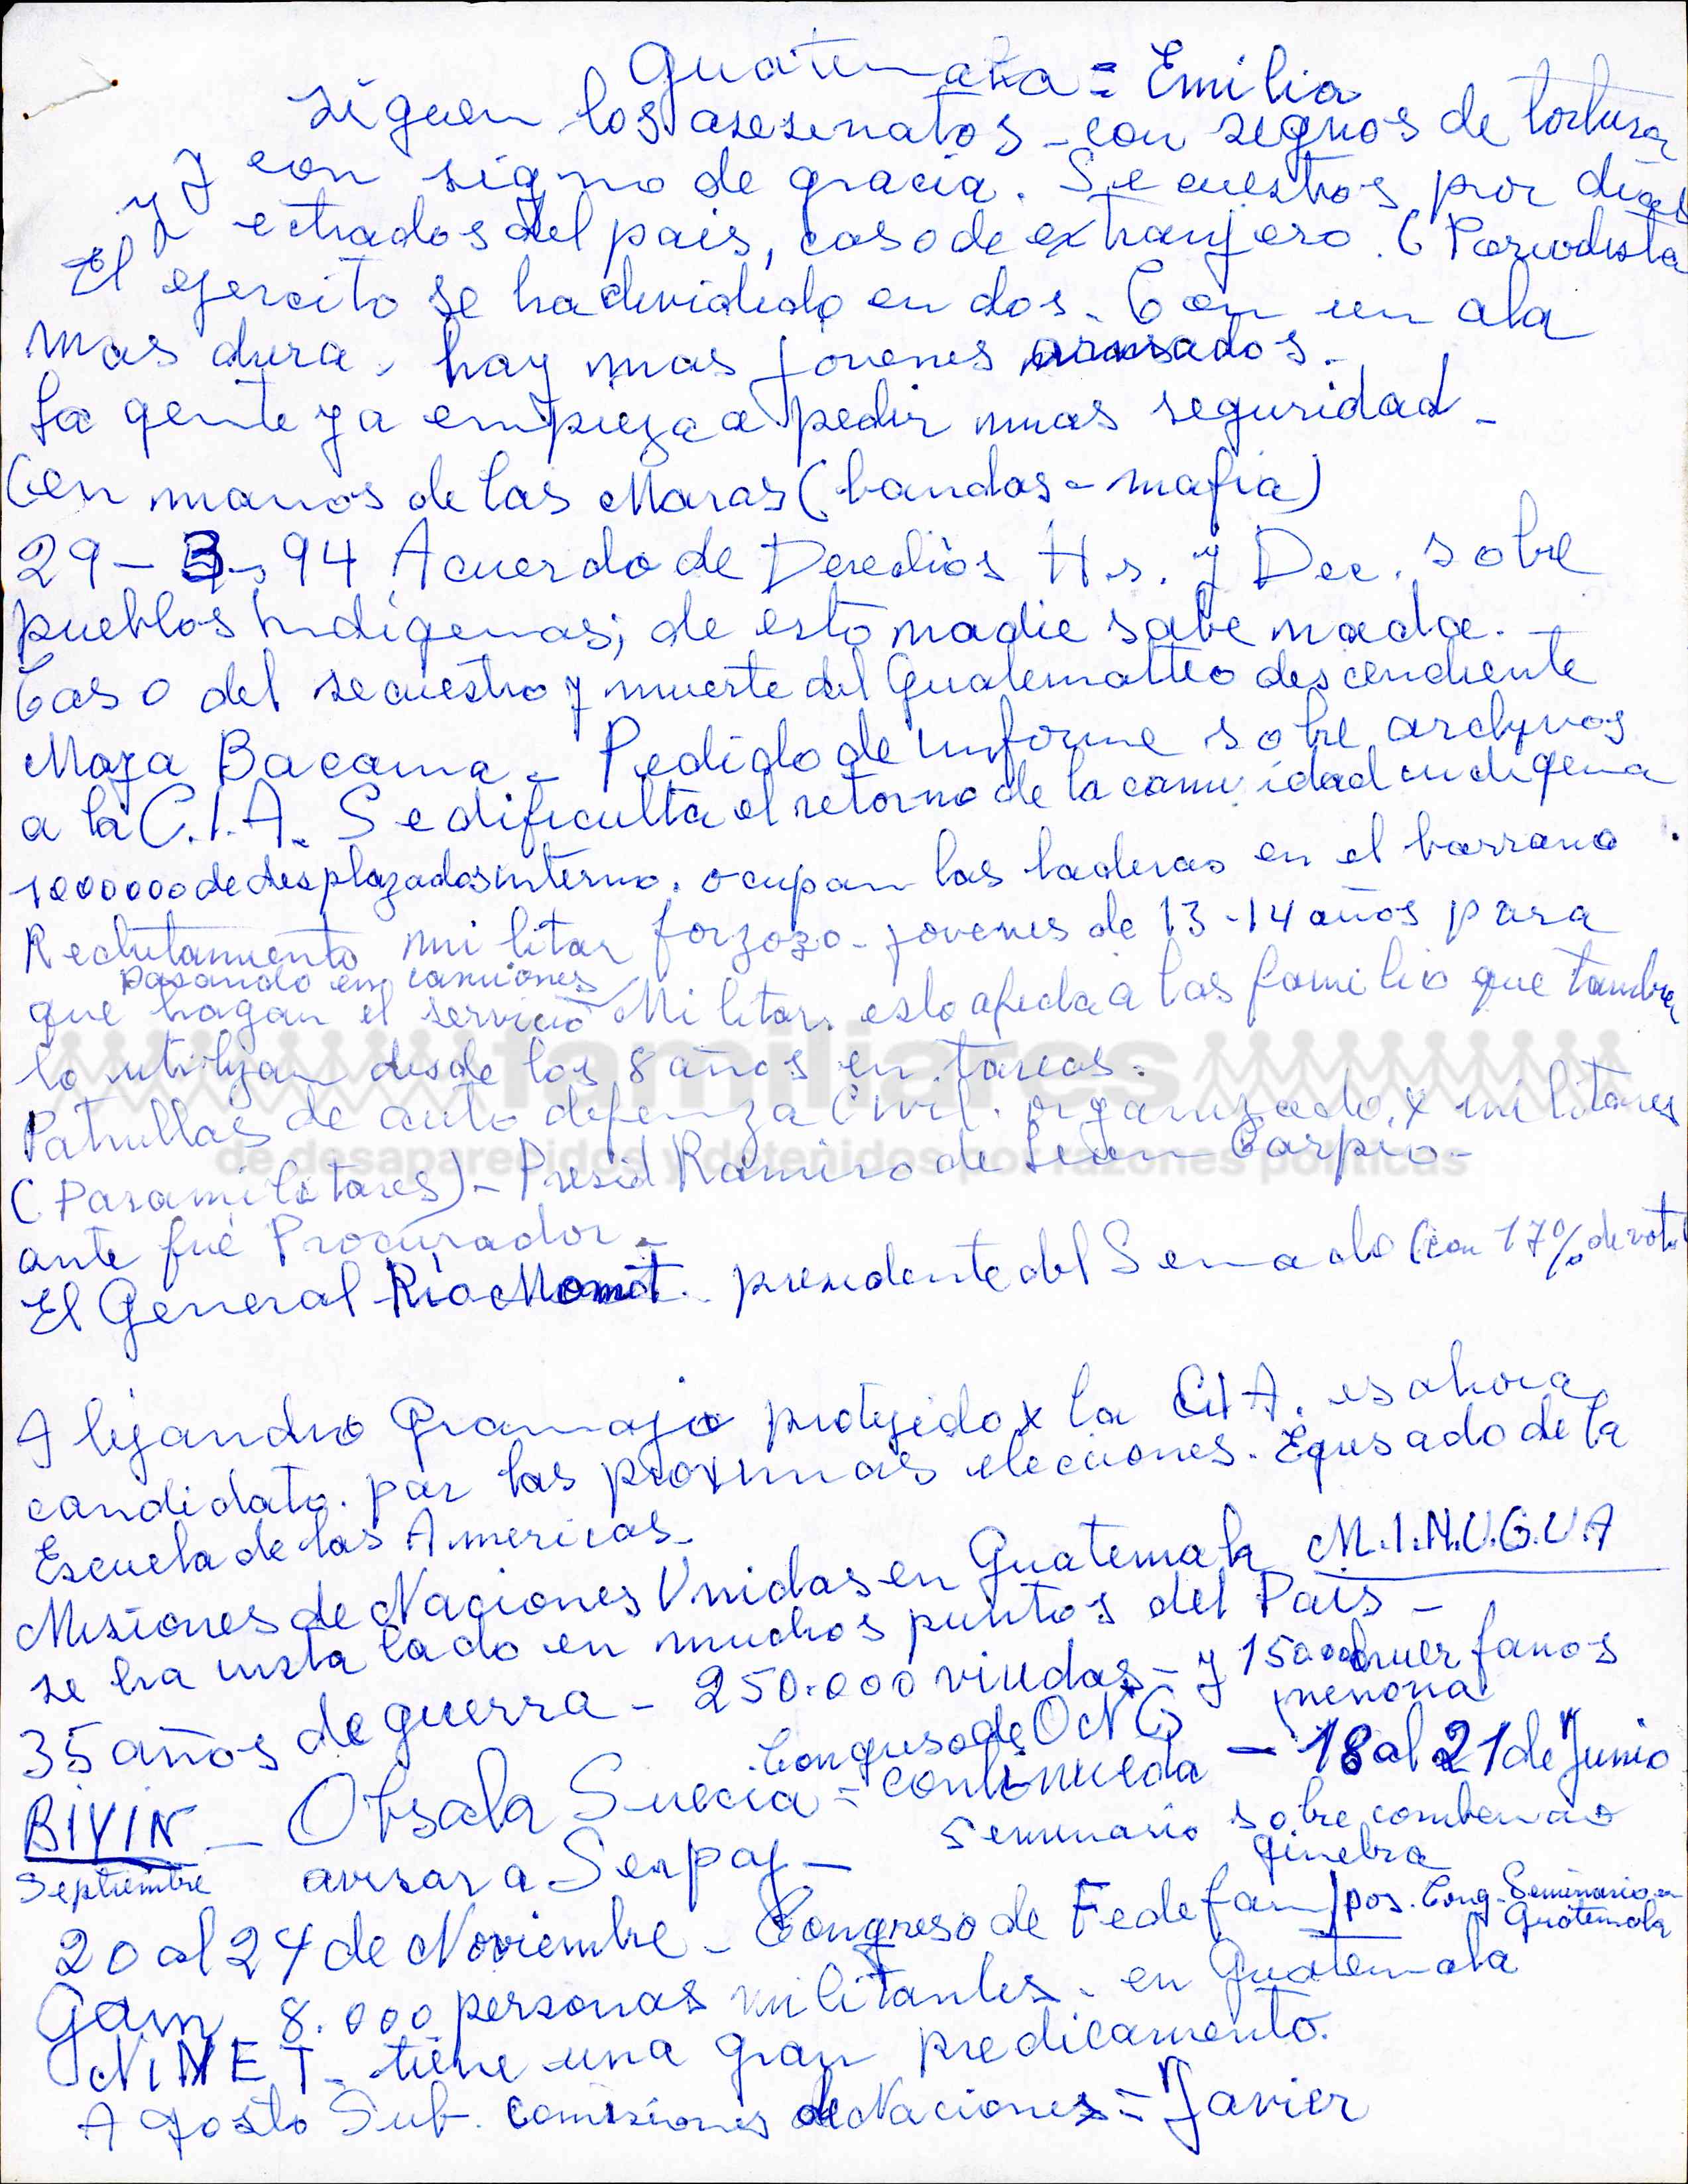 Guatemala = Emilia
Siguen los asesenatos - con segnos de tortura
y con signo de gracia. Secuestros por dias
y echados del pais, caso de extranjero. (Periodista
El ejercito se ha dividido en dos. Con un ala
mas dura, hay mas jovenes armados.
La gente ya empieza a pedir mas seguridad -
(en manos de las Maras (bandas = mafia)
29 - 3 - 94 Acuerdo de Derechos Hs. y Dec. sobre
pueblos Indigenas; de esto nadie sabe nada. -
Caso del secuestro y muerte del Guatemalteo descendiente
Maya Bacama - Pedido de informe sobre archyvos
a la C.I.A. Se dificulta el retorno de la comunidad indigena
1000000 de desplazados interno. ocupan las laderas en el barranco
Reclutamiento militar forzozo - jovenes de 13 - 14 años para
pasando en camiones
que hagan el servicio Militar. esto afecta a las familio que tambien
lo utilizan desde los 8 años en tareas.
familiares
Patrullas de auto defenza Civil. organizado x militares
de desaparecidos y detenidos por razones políticos
(Paramilitares) - Presid Ramiro de Leon Carpio -
ante fué Procurador -
El General Rio Momt. presidente del Senado (con 17% de votos
Alejandro Gramajo protejido x la CIA. es ahora
candidato. par las proximas elecciones. Egresado de la
Escuela de las Americas -
Misiones de Naciones Unidas en Guatemala M.I.N.U.G.U.A
se ha instalado en muchos puntos del Pais -
35 años de guerra - 250.000 viudas - y 150000 huerfanos
Congreso de ONG
BIVIN - Obsala Suecia = - 18 al 21 de Junio
Septiembre avisar a Serpaj - Seminario sobre
Ginebra
20 al 24 de Noviembre - Congreso de Fedefam / pos. Cong - Seminario en
Guatemala
Gam 8.000 personas militantes - en Guatemala
NINET - tiene una gran predicamento.
Agosto Sub. comisiones de Naciones = Javier